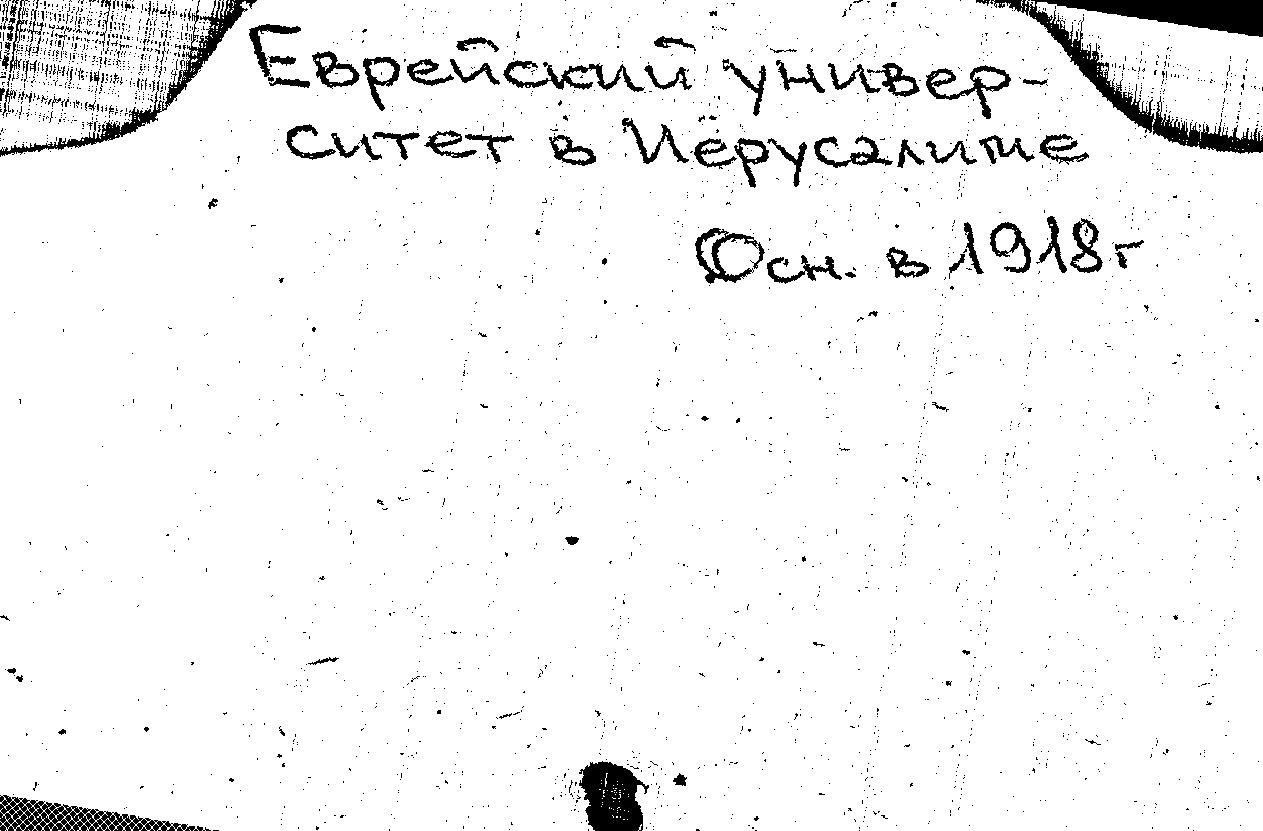 Еврейский универ-
ситет в Иерусалиме
Осн. в 1918г